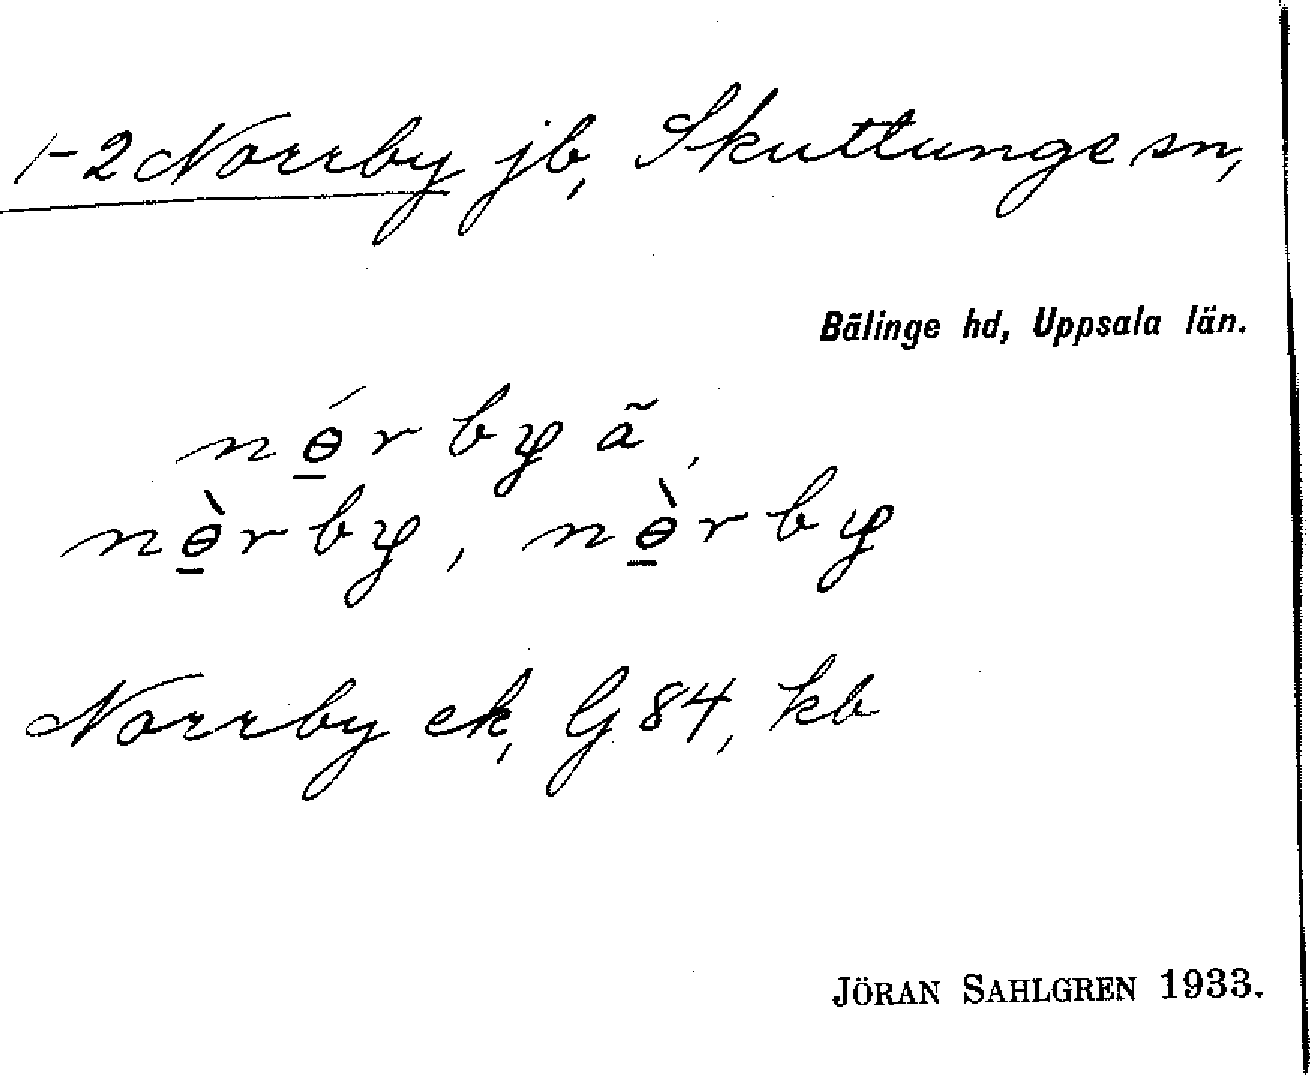 1-2 Norrby jb, Skuttunge sn,
Bälinge hd, Uppsala län.
nɵ̲́rby ã,
nɵ̲̀rby, nɵ̲̀rby
Norrby ek, G 84, kb
JÖRAN SAHLGREN 1933.